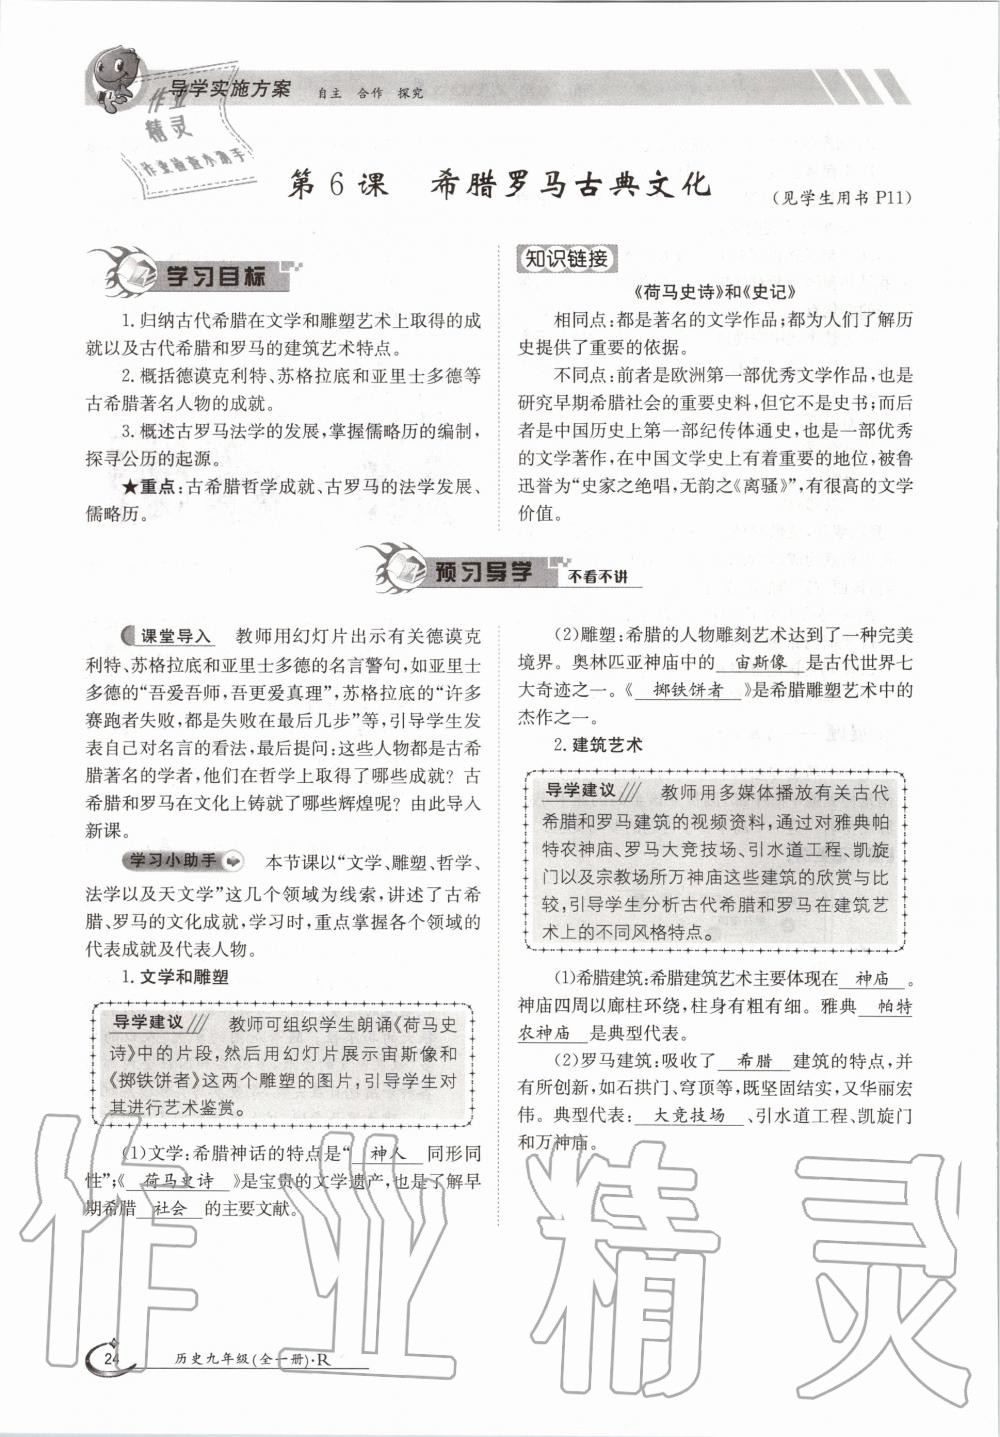 导学实施方案 自主 合作 探究
作业
精灵
作业检查小助手
第6课 希腊罗马古典文化
(见学生用书P11)
学习目标
1.归纳古代希腊在文学和雕塑艺术上取得的成
就以及古代希腊和罗马的建筑艺术特点。
2.概括德谟克利特、苏格拉底和亚里士多德等
古希腊著名人物的成就。
3.概述古罗马法学的发展,掌握儒略历的编制,
探寻公历的起源。
★重点:古希腊哲学成就、古罗马的法学发展、
儒略历。
知识链接
《荷马史诗》和《史记》
相同点:都是著名的文学作品;都为人们了解历
史提供了重要的依据。
不同点:前者是欧洲第一部优秀文学作品,也是
研究早期希腊社会的重要史料,但它不是史书;而后
者是中国历史上第一部纪传体通史,也是一部优秀
的文学著作,在中国文学史上有着重要的地位,被鲁
迅誉为“史家之绝唱,无韵之《离骚》”,有很高的文学
价值。
预习导学 不看不讲
课堂导入 教师用幻灯片出示有关德谟克
利特、苏格拉底和亚里士多德的名言警句,如亚里士
多德的“吾爱吾师,吾更爱真理”,苏格拉底的“许多
赛跑者失败,都是失败在最后几步”等,引导学生发
表自己对名言的看法,最后提问:这些人物都是古希
腊著名的学者,他们在哲学上取得了哪些成就？古
希腊和罗马在文化上铸就了哪些辉煌呢？由此导入
新课。
学习小助手 本节课以“文学、雕塑、哲学、
法学以及天文学”这几个领域为线索,讲述了古希
腊、罗马的文化成就,学习时,重点掌握各个领域的
代表成就及代表人物。
1.文学和雕塑
导学建议 教师可组织学生朗诵《荷马史
诗》中的片段,然后用幻灯片展示宙斯像和
《掷铁饼者》这两个雕塑的图片,引导学生对
其进行艺术鉴赏。
(1)文学:希腊神话的特点是“ 神人 同形同
性”;《 荷马史诗 》是宝贵的文学遗产,也是了解早
期希腊 社会 的主要文献。
(2)雕塑:希腊的人物雕刻艺术达到了一种完美
境界。奥林匹亚神庙中的 宙斯像 是古代世界七
大奇迹之一。《 掷铁饼者 》是希腊雕塑艺术中的
杰作之一。
2.建筑艺术
导学建议 教师用多媒体播放有关古代
希腊和罗马建筑的视频资料,通过对雅典帕
特农神庙、罗马大竞技场、引水道工程、凯旋
门以及宗教场所万神庙这些建筑的欣赏与比
较,引导学生分析古代希腊和罗马在建筑艺
术上的不同风格特点。
(1)希腊建筑:希腊建筑艺术主要体现在 神庙 。
神庙四周以廊柱环绕,柱身有粗有细。雅典 帕特
农神庙 是典型代表。
(2)罗马建筑:吸收了 希腊 建筑的特点,并
有所创新,如石拱门、穹顶等,既坚固结实,又华丽宏
伟。典型代表: 大竞技场 、引水道工程、凯旋门
和万神庙。
作业精灵
24 历史九年级(全一册)·R